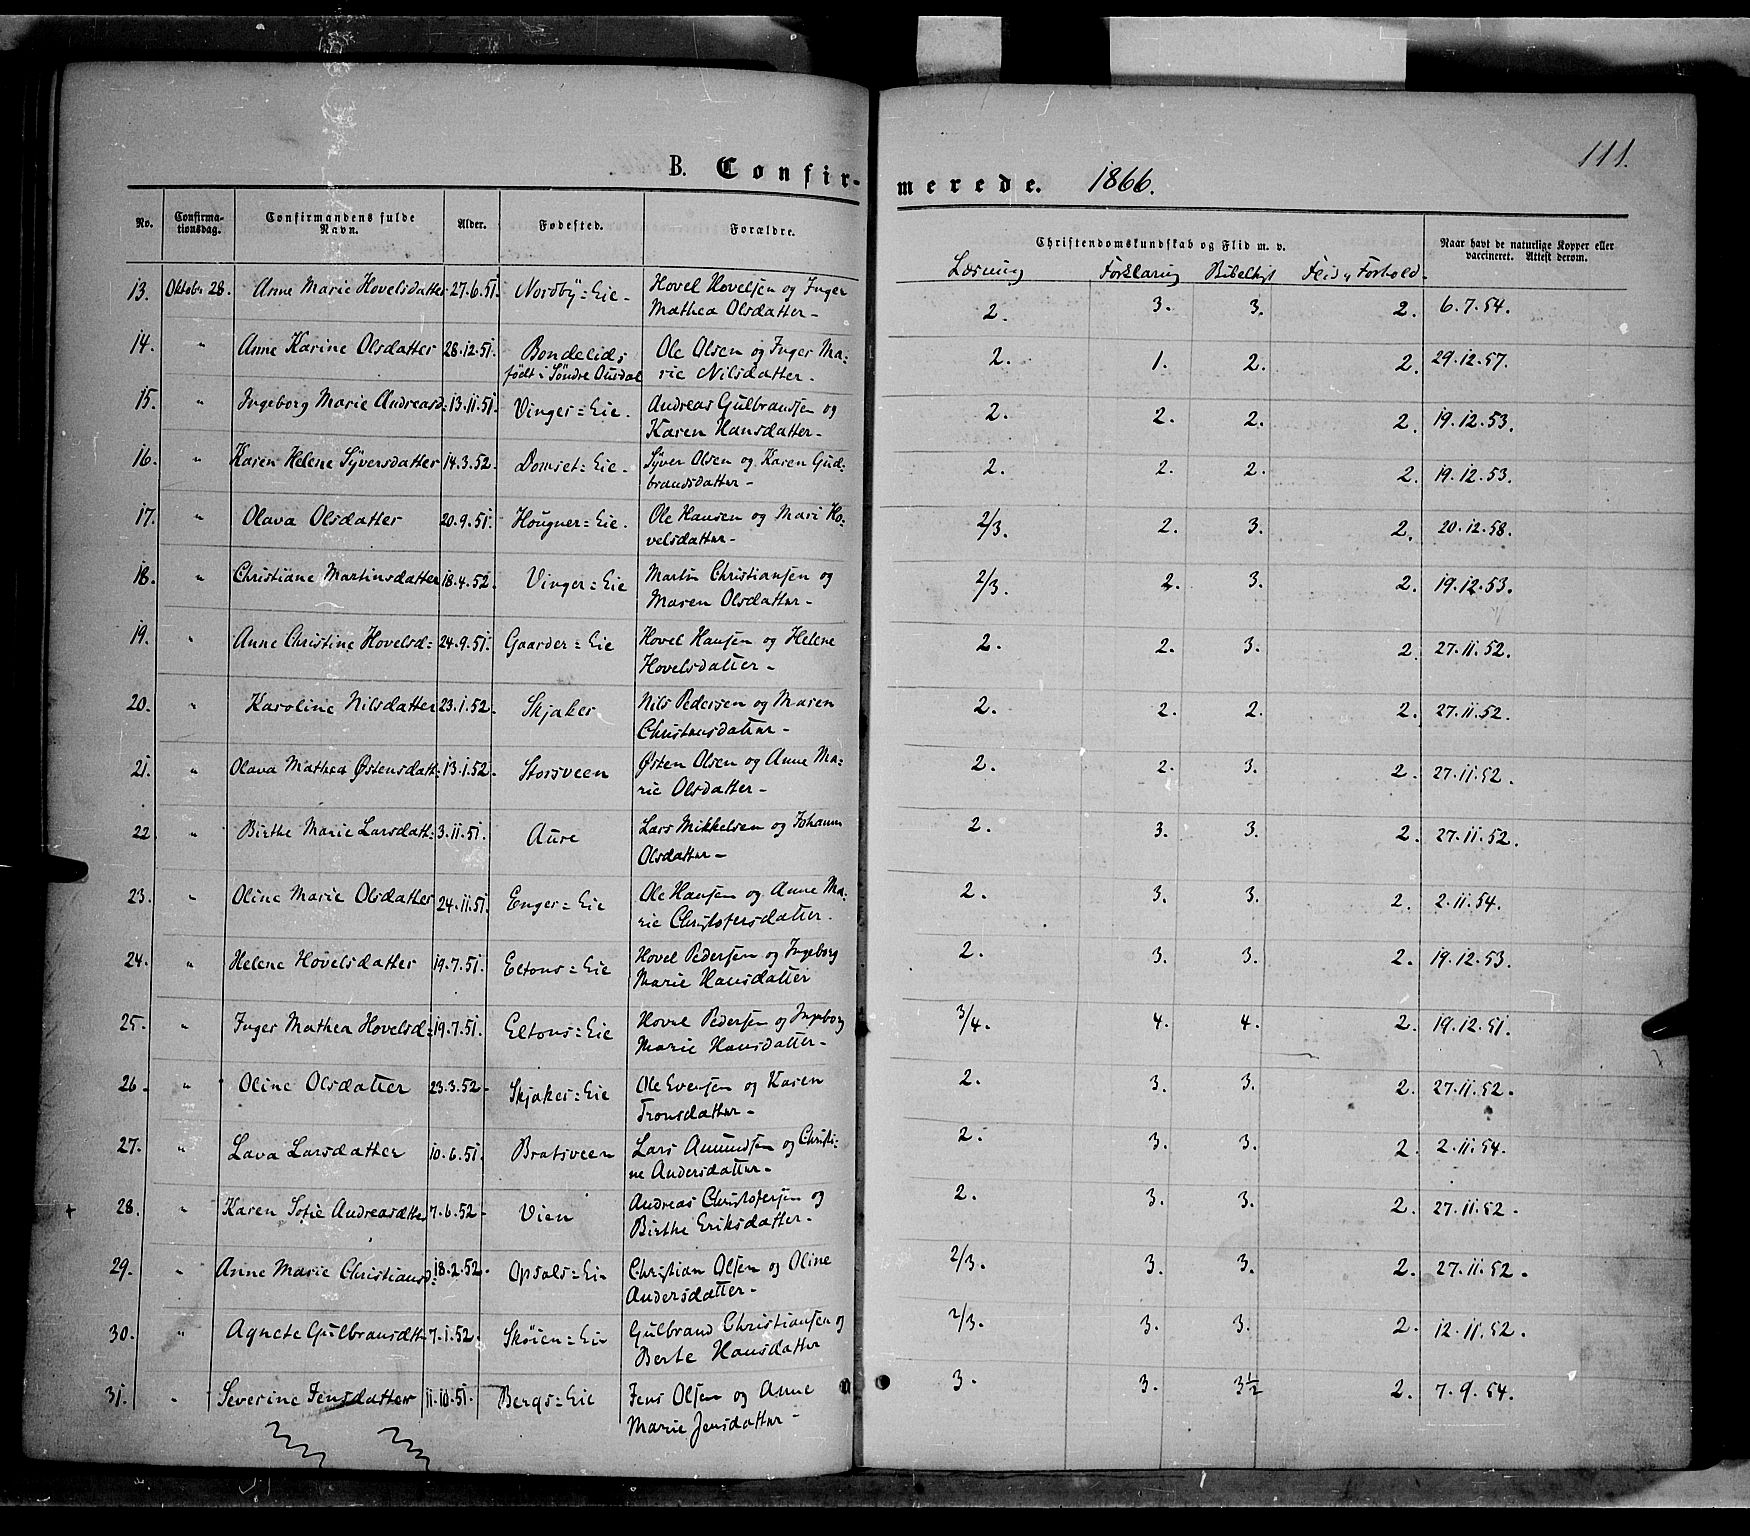 111.
B. Confirmerede. 1866.
No. Confirmationsdag. Confirmandens fulde Navn. Alder. Fødested. Forældre. Christendomskundskab og Flid m. v. Naar havt de naturlige Kopper eller vaccineret. Attest derom.
Læsning Forklaring Bibelhist Flid og Forhold
13. Oktober 28. Anne Marie Hovelsdatter 27.6.51. Nordby=Eie- Hovel Hovelsen og Inger 2. 3. 3. 2. 6.7.54.
Mathea Olsdatter-
14. " Anne Karine Olsdatter 28.12.51. Bondelids Ole Olsen og Inger Ma- 2. 1. 2. 2. 29.12.57.
født i Söndre Ousdal rie Nilsdatter-
15. " Ingeborg Marie Andreasd= 13.11.51. Vinger=Eie. Andreas Gulbransen og 2. 2. 2. 2. 19.12.53.
Karen Hansdatter-
16. " Karen Helene Syversdatter 14.3.52. Domset=Eie- Syver Olsen og Karen Gud- 2. 2. 2. 2. 19.12.53.
brandsdatter-
17. " Olava Olsdatter 20.9.51. Hougner=Eie. Ole Hansen og Mari Ho- 2/3. 2. 3. 2. 20.12.58.
velsdatter-
18. " Christiane Martinsdatter 18.4.52. Vinger=Eie Martin Christiansen og 2/3. 2. 3. 2. 19.12.53.
Maren Olsdatter-
19. " Anne Christine Hovelsd= 24.9.51. Gaarder=Eie Hovel Hansen og Helene 2. 2. 3. 2. 27.11.52.
Hovelsdatter-
20. " Karoline Nilsdatter 23.1.52. Skjaker Nils Pedersen og Maren 2. 2. 2. 2. 27.11.52.
Christensdatter-
21. " Olava Mathea Østensdatt= 13.1.52. Storsveen Østen Olsen og Anne Ma- 2. 2. 3. 2. 27.11.52.
rie Olsdatter-
22. " Birthe Marie Larsdatt= 3.11.51. Aure Lars Mikkelsen og Johanne 2. 3. 3. 2. 27.11.52.
Olsdatter-
23. " Oline Marie Olsdatter 24.11.51. Enger=Eie Ole Hansen og Anne Ma- 2. 3. 3. 2. 2.11.54.
rie Christofersdatter.
24. " Helene Hovelsdatter 19.7.51. Eltons=Eie Hovel Pedersen og Ingeborg 2. 3. 3. 2. 19.12.53.
Marie Hansdatter
25. " Inger Mathea Hovelsd= 19.7.51. Eltons=Eie Hovel Pedersen og Ingeborg 3/4. 4. 4. 2. 19.12.51.
Marie Hansdatter-
26. " Oline Olsdatter 23.3.52. Skjaker=Eie Ole Evensen og Karen 2. 3. 3. 2. 27.11.52.
Tronsdatter-
27. " Lava Larsdatter 10.6.51. Bratsveen Lars Amundsen og Christi- 2. 3. 3. 2. 2.11.54.
ne Andersdatter-
+ 28. " Karen Sofie Andreasdtter 7.6.52. Vien Andreas Christofersen og 2. 3. 3. 2. 27.11.52.
Birthe Eriksdatter-
29. " Anne Marie Christiansd= 18.2.52. Opsals=Ei- Christian Olsen og Oline 2/3. 3. 3. 2. 27.11.52.
Andersdatter-
30. " Agnete Gulbransdtt- 7.1.52. Skøien=Eie Gulbrand Christiansen og 2/3. 3. 3. 2. 12.11.52.
Berte Hansdatter
31. " Severine Jensdatter 11.10.51. Bergs=Eie Jens Olsen og Anne 3. 3. 3½ 2. 7.9.54.
Marie Jensdatter-